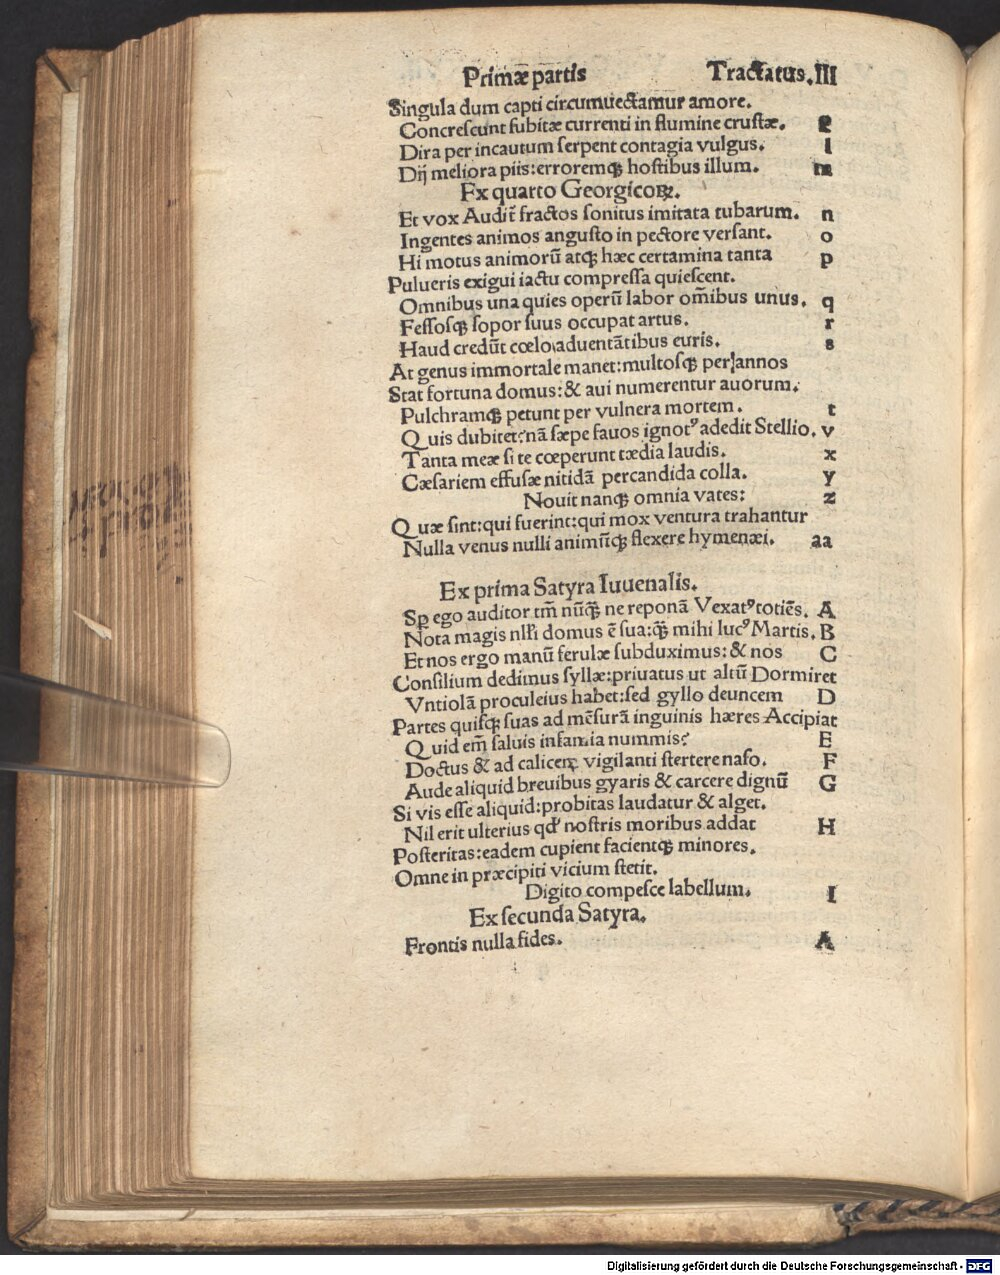 Primæ partis Tractatus.III
Singula dum capti circumuectamur amore.
Concreſcunt ſubitæ currenti in flumine cruſtæ.
Dira per incautum ſerpent contagia vulgus. l
Dĳ meliora piis:erroremqꝫ hoſtibus illum. m
Ex quarto Georgicoꝝ.
Et vox Audit̃ fractos ſonitus imitata tubarum. n
Ingentes animos anguſto in pectore verſant. o
Hi motus animorū atqꝫ hæc certamina tanta p
Pulueris exigui iactu compreſſa quieſcent.
Omnibus una quies operū labor om̄ibus unus. q
Feſſoſqꝫ ſopor ſuus occupat artus. r
Haud credūt cœlo aduentātibus euris. s
At genus immortale manet:multoſqꝫ per annos
Stat fortuna domus:& aui numerentur auorum.
Pulchramqꝫ petunt per vulnera mortem. t
Quis dubitet?nā ſæpe fauos ignotꝰ adedit Stellio. v
Tanta meæ ſi te cœperunt tædia laudis. x
Cæſariem effuſæ nitidā percandida colla. y
Nouit nanqꝫ omnia vates: z
Quæ ſint:qui fuerint:qui mox ventura trahantur
Nulla venus nulli animūqꝫ flexere hymenæi. aa
Ex prima Satyra Iuuenalis.
Sp̲ ego auditor tm̄ nūq̄ꝫ ne reponā Vexatꝰ totiēs. A
Nota magis nl̄li domus ē ſua:q̄ꝫ mihi lucꝰ Martis. B
Et nos ergo manū ferulæ ſubduximus:& nos C
Conſilium dedimus ſyllæ:priuatus ut altū Dormiret
Vntiolā proculeius habet:ſed gyllo deuncem D
Partes quiſqꝫ ſuas ad mēſurā inguinis hæres Accipiat
Quid em̄ ſaluis infamia nummis? E
Doctus & ad calicem vigilanti ſtertere naſo. F
Aude aliquid breuibus gyaris & carcere dignū G
Si vis eſſe aliquid:probitas laudatur & alget.
Nil erit ulterius qd' noſtris moribus addat H
Poſteritas:eadem cupient facientqꝫ minores.
Omne in præcipiti vicium ſtetit.
Digito compeſce labellum. I
Ex ſecunda Satyra.
Frontis nulla fides. A
Digitalisierung gefördert durch die Deutsche Forschungsgemeinschaft - DFG